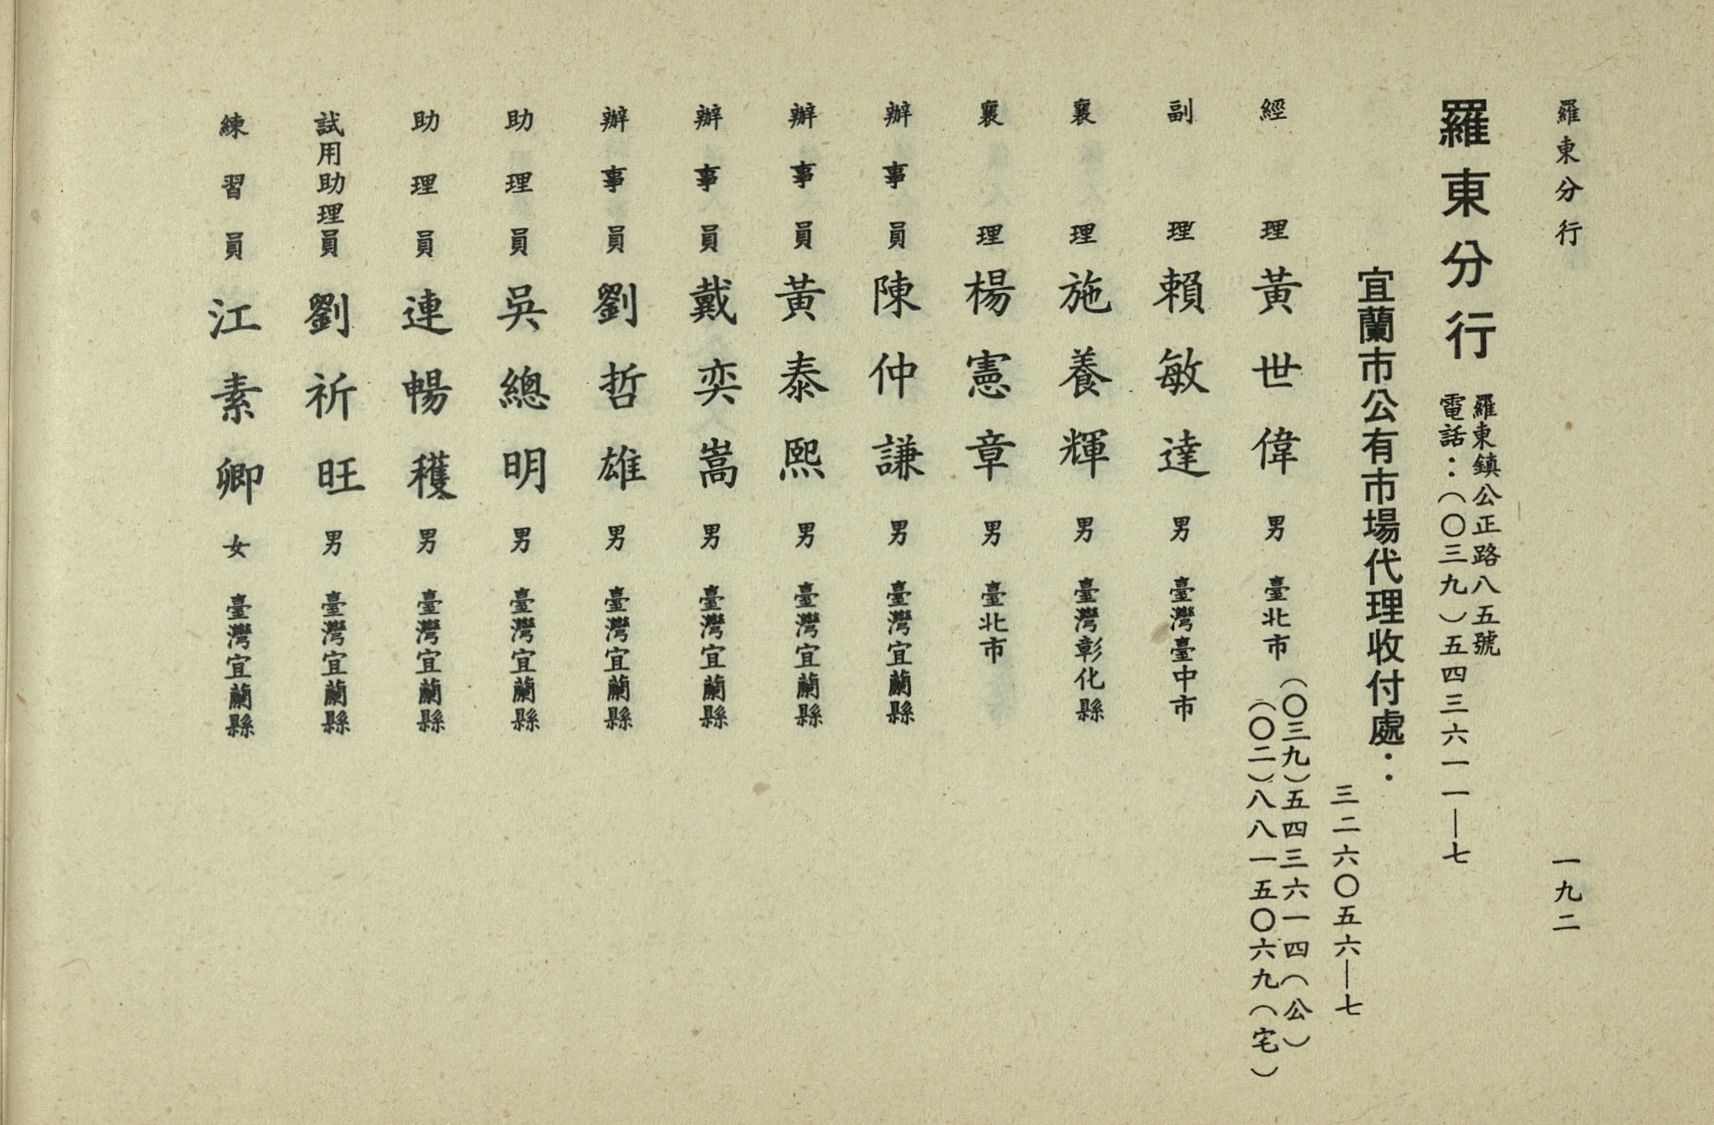 羅東分行
一九二
羅東分行
羅東鎮公正路八五號
電話：（〇三九）五四三六一一—七
宜蘭市公有市場代理收付處：
三二六〇五六—七
經理黃世偉男臺北市
（〇三九）五四三六一四（公）
（〇二）八八一五〇六九（宅）
副理賴敏達男臺灣臺中市
襄理施養輝男臺灣彰化縣
襄理楊憲章男臺北市
辦事員陳仲謙男臺灣宜蘭縣
辦事員黃泰熙男臺灣宜蘭縣
辦事員戴奕嵩男臺灣宜蘭縣
辦事員劉哲雄男臺灣宜蘭縣
助理員吳總明男臺灣宜蘭縣
助理員連暢穫男臺灣宜蘭縣
試用助理員劉祈旺男臺灣宜蘭縣
練習員江素卿女臺灣宜蘭縣